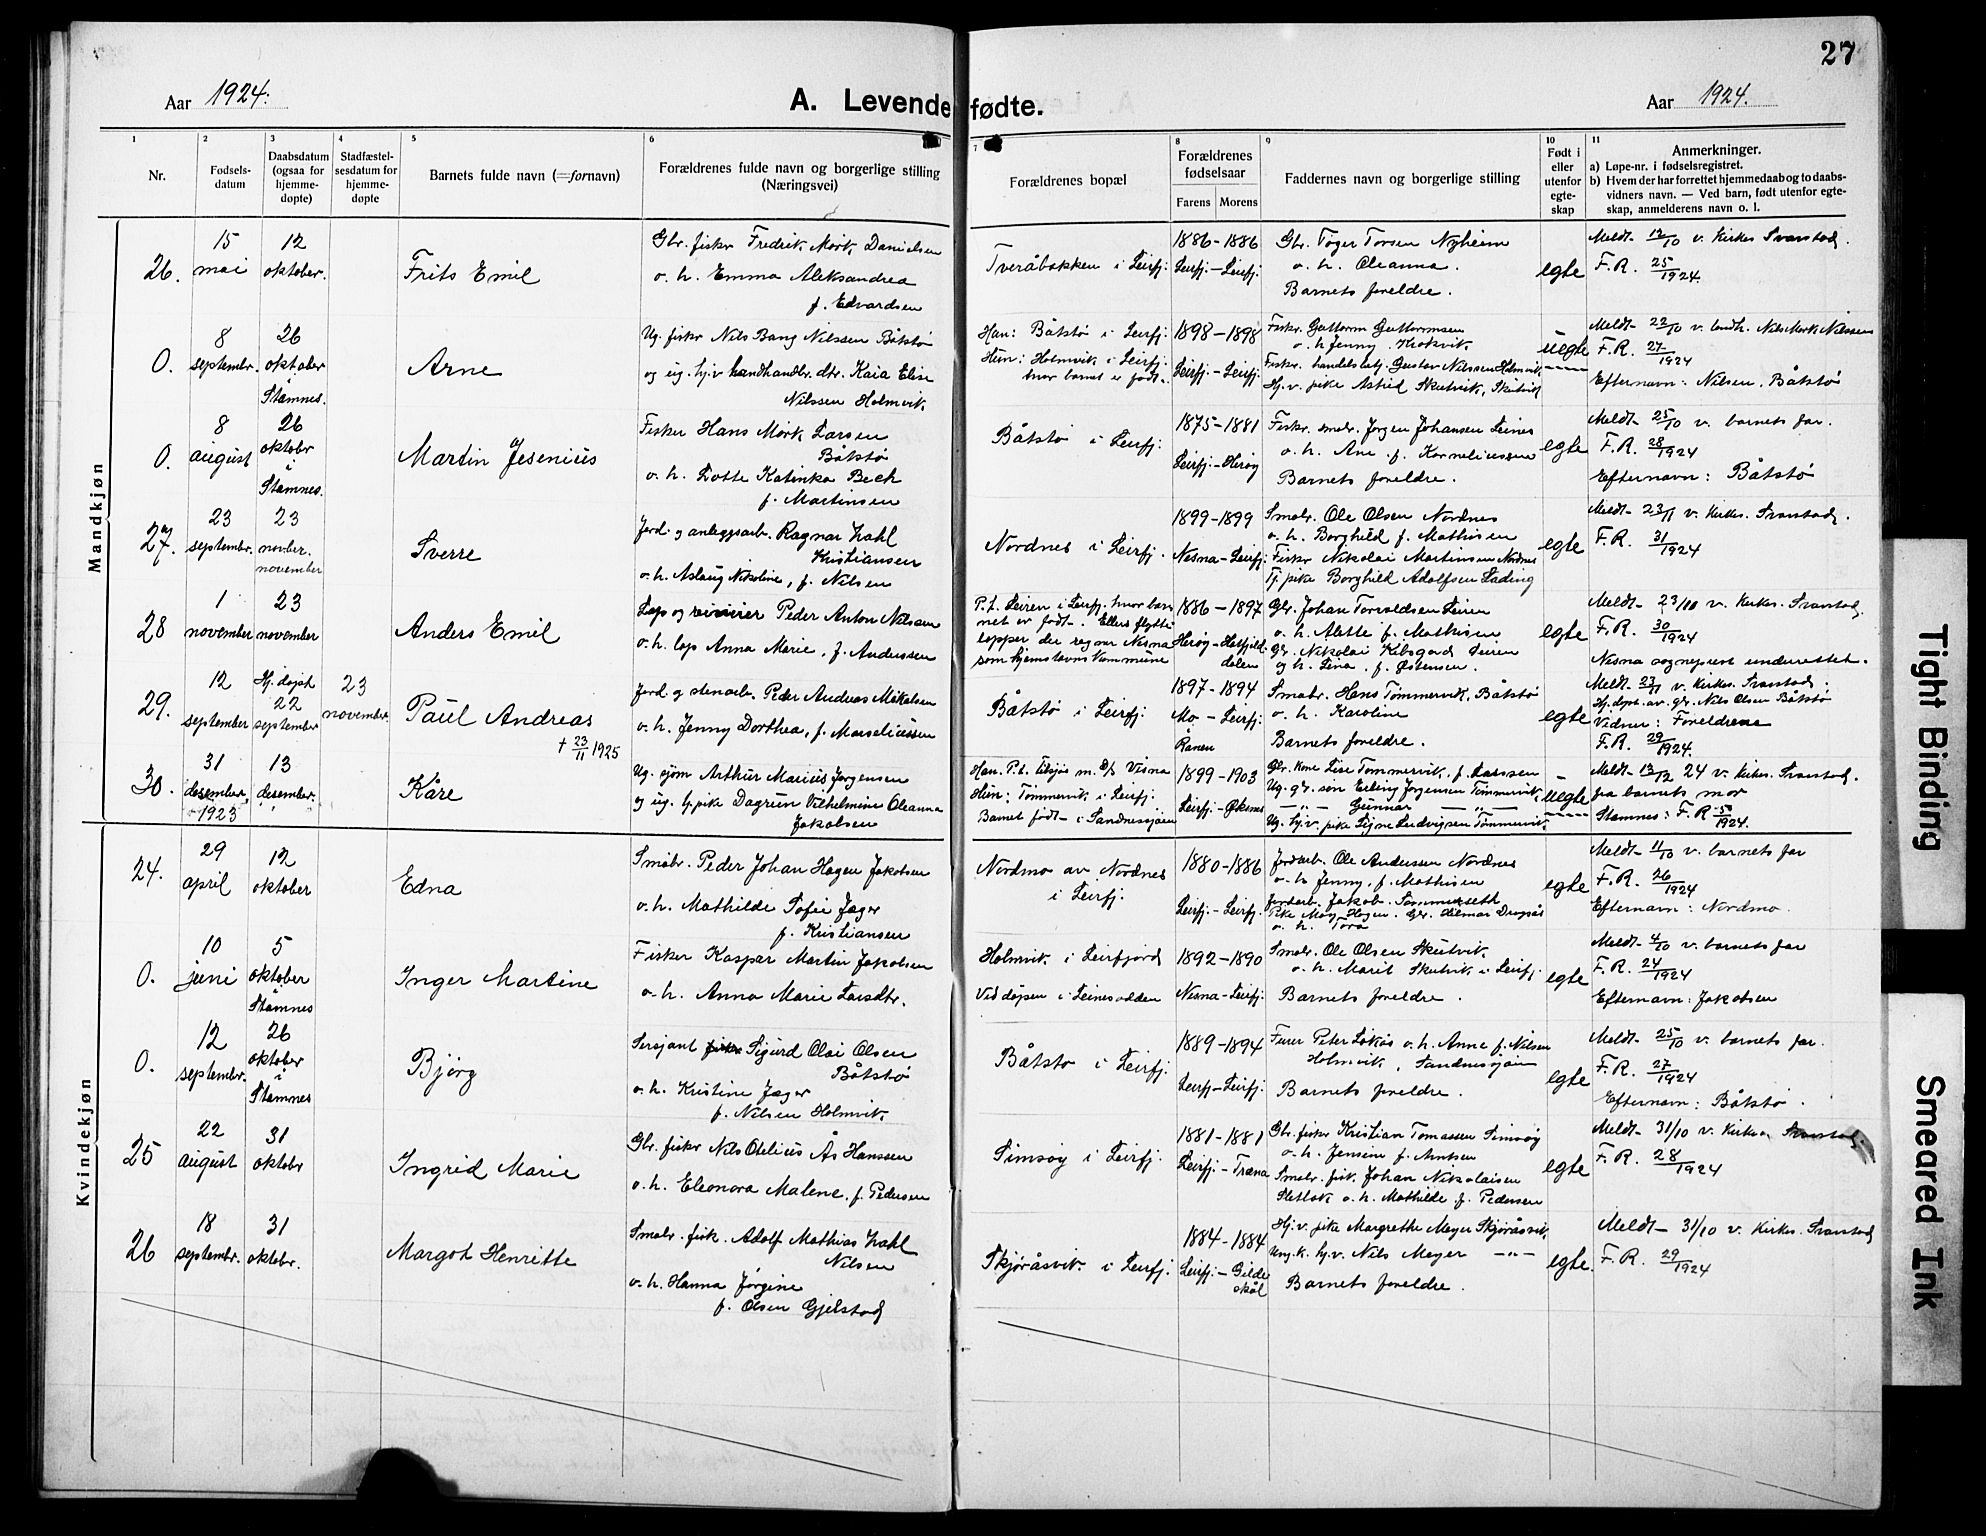 27
Aar 1924.
A. Levendefødte.
Aar 1924.
1
2
3
4
5
6
7
8
9
10
11
Nr.
Fødsels-
datum
Daabsdatum
(ogsaa for
hjemme-
døpte)
Stadfæstel-
sesdatum for
hjemme-
døpte
Barnets fulde navn (=fornavn)
Forældrenes fulde navn og borgerlige stilling
(Næringsvei)
Forældrenes bopæl
Forældrenes
fødselsaar
Farens
Morens
Faddernes navn og borgerlige stilling
Født i
eller
utenfor
egte-
skap
Anmerkninger.
a) Løpe-nr. i fødselsregistret.
b) Hvem der har forrettet hjemmedaab og to daabs-
vidners navn. — Ved barn, født utenfor egte-
skap, anmelderens navn o. l.
Mandkjøn
26.
15
mai
12
oktober.
Frits Emil
Gbr. fisker Fredrik Mørk Danielsen
o. h. Emma Aleksandrea
f. Edvardsen
Tveråbakken i Leirfj.
1886 - 1886
Leirfj. - Leirfj.
Gbr. Tøger Torsen Nyheim
o. h. Oleanna.
Barnets foreldre.
egte
Meldt 12/10 v. kirkes.
F. R. 25/1924.
0.
8
septembr.
26
oktober
i
Stamnes.
Arne
Ug. fiskr Nils Bang Nilssen Båtstø
og ug. hj.v. handhandlr. dtr. Kaia Elise
Nilssen Holmvik.
Han: Båtstø i Leirfj.
Hun: Holmvik i Leirfj.
hvor barnet er født.
1898 - 1898
Leirfj. - Leirfj.
Fiskr. Guttorm Guttormsen
o. h. Jenny
Fiskr. handelsbetj. Gustav Nilssen Holmvik
Hj. v. pike Astrid Skutvik, Skutvik
uegte
Meldt 22/10 v. landh. Nils Mørk Nilssen
F. R. 27/1924
Efternavn: Nilsen, Båtstø
0.
8
august
26
oktober
i
Stamnes.
Martin Jesenius
Fisker Hans Mørk Larsen
Båtstø
o. h. Lotte Katinka Bech
f. Martinsen
Båtstø i Leirfj.
1875 - 1881
Leirfj. - Herøy
Fiskr. smbr. Jørgen Johansen Leines
o. h. Ane f. Korneliussen
Barnets foreldre.
egte
Meldt 25/10 v. barnets far.
F. R. 28/1924
Efternavn: Båtstø
27.
23
septembr.
23
novber.
november
Sverre
Jord. og anleggsarb. Ragnar Zahl
Kristiansen
o. h. Aslaug Nikoline, f. Nilsen
Nordnes i Leirfj.
1899 - 1899
Nesna - Leirfj.
Smbr. Ole Olsen Nordnes
o. h. Borghild f. Mathisen
Fiskr Nikolai Martinsen Nordnes
Tj. pike Borghild Adolfsen Leding
egte
Meldt 23/11 v. kirkes.
F. R. 31/1924
28
1
november
23
november
Anders Emil
Lap og Peder Anton Nilssen
o. h. lap Anna Marie, f. Anderssen
P. t. Leiren i Leirfj. hvor bar-
net er født. Ellers flytt-
lapper der regner Nesna
som hjemstavnskommune
1886 - 1897
Herøy - Hatfjeld-
dalen
Gbr. Johan Torvaldsen Leiren
o. h. Alette f. Mathisen
Gbr. Nikolai Kibsgard Leiren
og h. Lina, f. Østensen.
egte
Meldt 23/10 v. kirkes.
F. R. 30/1924
Nesna sogneprest underrettet.
29.
12
september
Hj. døpt
22
september
23
november
Paul Andreas
† 23/11 1925
Jord. og stenarb. Peder Andreas Mikalsen
o. h. Jenny Dorthea, f. Marseliussen
Båtstø i Leirfj.
1897 - 1894
Mo - Leirfj.
Ranen
Smabr. Hans Tømmervik, Båtstø
o. h. Karoline
Barnets foreldre.
egte
Meldt 23/11 v. kirkes.
Hj. døpt av gbr. Nils Olsen Båtstø
Vidner: Foreldrene
F. R. 29/1924.
30.
31
desember,
1923
13
desember.
Kåre
Ug. sjøm Arthur Marius Jørgensen
og ug. hj. pike Dagrun Vilhelmine Oleanna
Jakobsen
Han. P. t. tilsjøs m. D/S Visna
Hun: Tømmervik i Leirfj.
Barnet født i Sandnessjøen
1899 - 1903
Leirfj. - Øksnes
Gbr. kone Lise Tømmervik, f. Larssen
Ug. gbr. søn Erling Jørgensen Tømmervik,
— „ — Gunnar — „ —
Ug. hj. v. pike Signe Ludvigsen Tømmervik.
uegte
Meldt 13/12 24 v. kirkes.
fra barnets mor
Stamnes: F. R. 50/1924.
Kvindekjøn
24.
29
april
12
oktober
Edna
Småbr. Peder Johan Hagen Jakobsen
o. h. Mathilde Sofie Jæger
f. Kristiansen
Nordmo av Nordnes
i Leirfj.
1880 - 1886
Leirfj. - Leirfj.
Jordarb. Ole Andersen Nordnes
o. h. Jenny, f. Mathisen
Jordarb. Jakob Sommerseth
Pike May Hagen. Gbr. Hilmar
o. h. Tora
egte
Meldt 11/10 v. barnets far
F. R. 26/1924
Efternavn: Nordmo.
0.
10
juni
5
oktober
i
Stamnes
Inger Martine
Fisker Kaspar Martin Jakobsen
o. h. Anna Marie Larsdtr.
Holmvik i Leirfjord
Ved døpen i Leinesodden
1892 - 1890
Nesna - Leirfj.
Smabr. Ole Olsen Skutvik
o. h. Marit Skutvik i Leirfj.
Barnets foreldre.
egte
Meldt 4/10 v. barnets far
F. R. 24/1924
Efternavn: Jakobsen
0.
12
septembr.
26
oktober
i
Stamnes
Bjørg
Sersjant Sigurd Olai Olsen
Båtstø
o. h. Kristine Jæger
f. Nilsen Holmvik
Båtstø i Leirfj.
1889 - 1894
Leirfj. - Leirfj.
Furer Peter Løkås o. h. Anne f. Nilsen
Holmvik, Sandnessjøen
Barnets foreldre.
egte
Meldt 25/10 v. barnets far.
F. R. 27/1924
Efternavn: Båtstø.
25
22
august
31
oktobr
Ingrid Marie
Gbr. fiskr Nils Otelius Ås Hanssen
o. h. Eleonora Malene, f. Pedersen
Simsøy i Leirfj.
1881 - 1881
Leirfj. - Træna
Gbr. fiskr Kristian Tomassen Simsøy
o. h. Jensine f. Arntsen
Smabr. fisk. Johan Nikolaisen
Sletbak o. h. Mathilde f. Pedersen
egte
Meldt 31/10 v. kirkes.
F. R. 28/1924
26
18
septembr.
31
oktobr.
Margot Henritte
Smabr. fisk. Adolf Mathias Zahl
Nilsen
o. h. Hanna Jørgine
f. Olsen Gjelstad
Skjøråsvik i Leirfj.
1884 - 1884
Leirfj. - Gilde-
skål
Hj. v. pike Margrethe Meyer Skjøråsvik
Ung. k. hj. v. Nils Meyer — „ —
Barnets foreldre.
egte.
Meldt 31/10 v. kirkes.
F. R. 29/1924
Tight Binding
Smeared Ink